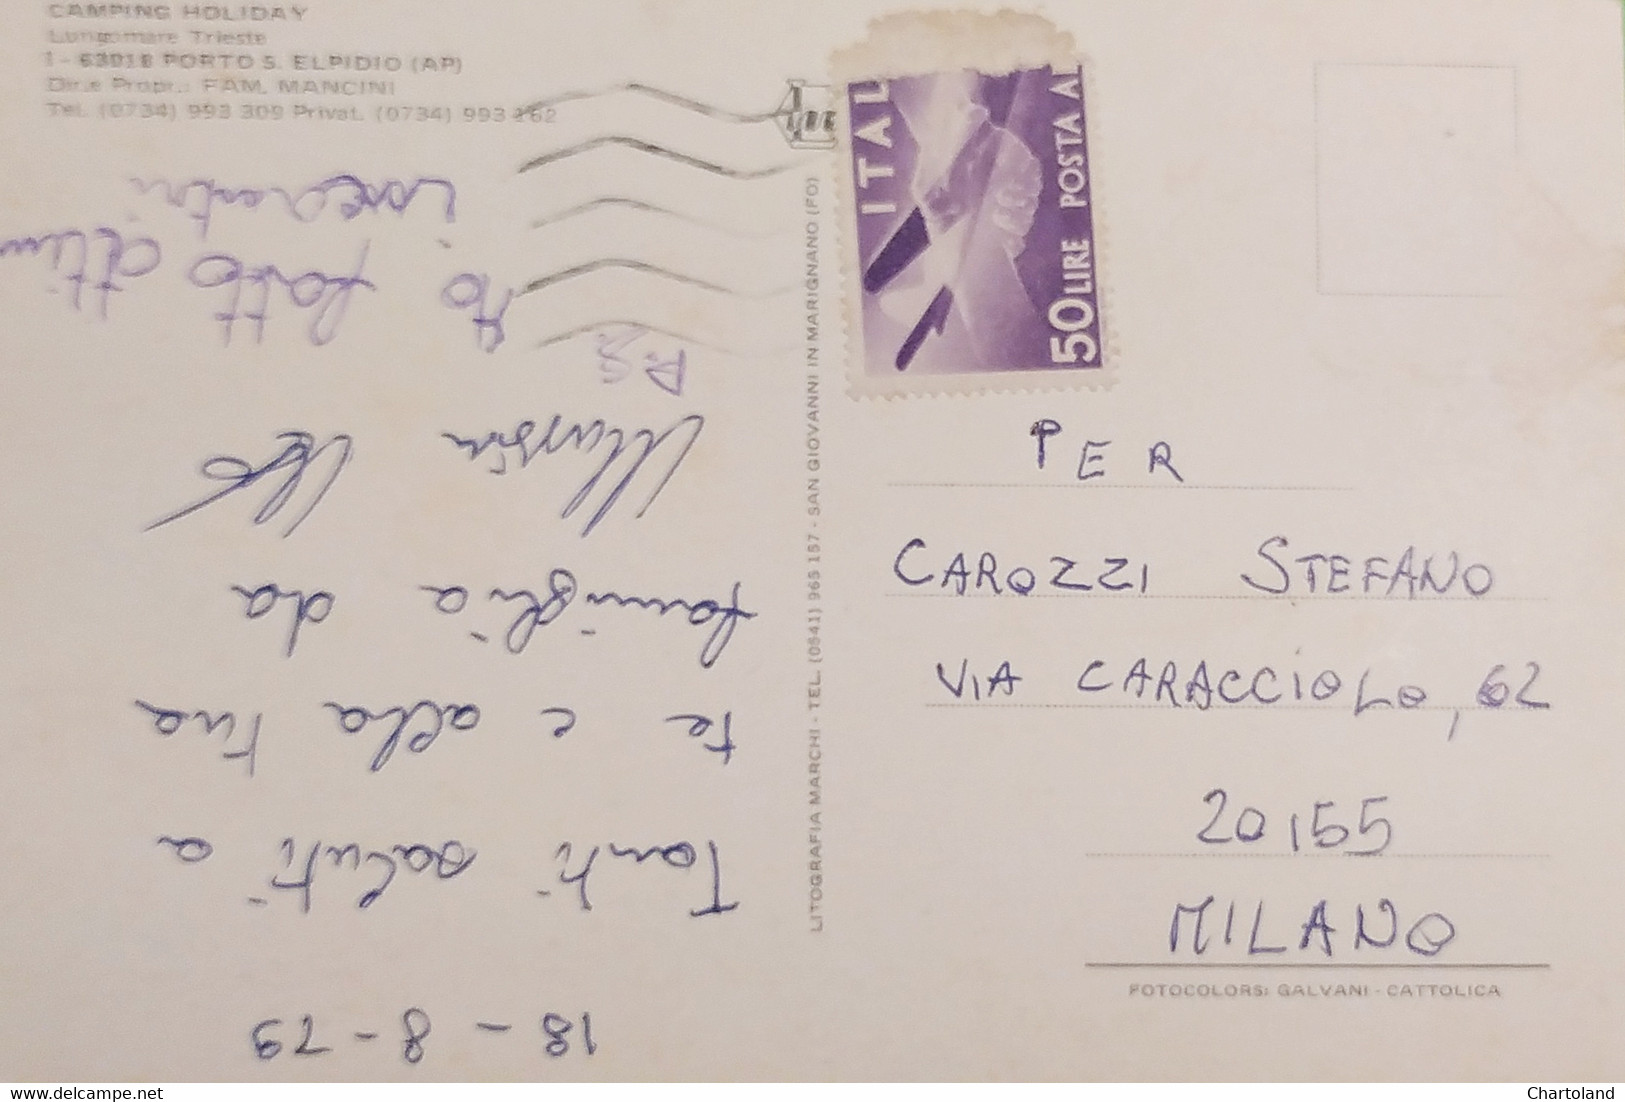 CAMPING HOLIDAY
Lungomare Trieste
I - 63018 PORTO S. ELPIDIO (AP)
Dir. e Propr.: FAM. MANCINI
Tel. (0734) 993 309 Privat. (0734) 993 262
18 - 8 - 79
Tanti saluti a
te e alla tua
famiglia da
P.S.
Ho fatto
LITOGRAFIA MARCHI - TEL. (0541) 965 157 - SAN GIOVANNI IN MARIGNANO (FO)
ITAL
50 LIRE POSTA A
PER
CAROZZI STEFANO
VIA CARACCIOLO, 62
20155
MILANO
FOTOCOLORS: GALVANI - CATTOLICA
https://www.delcampe.net
Chartoland